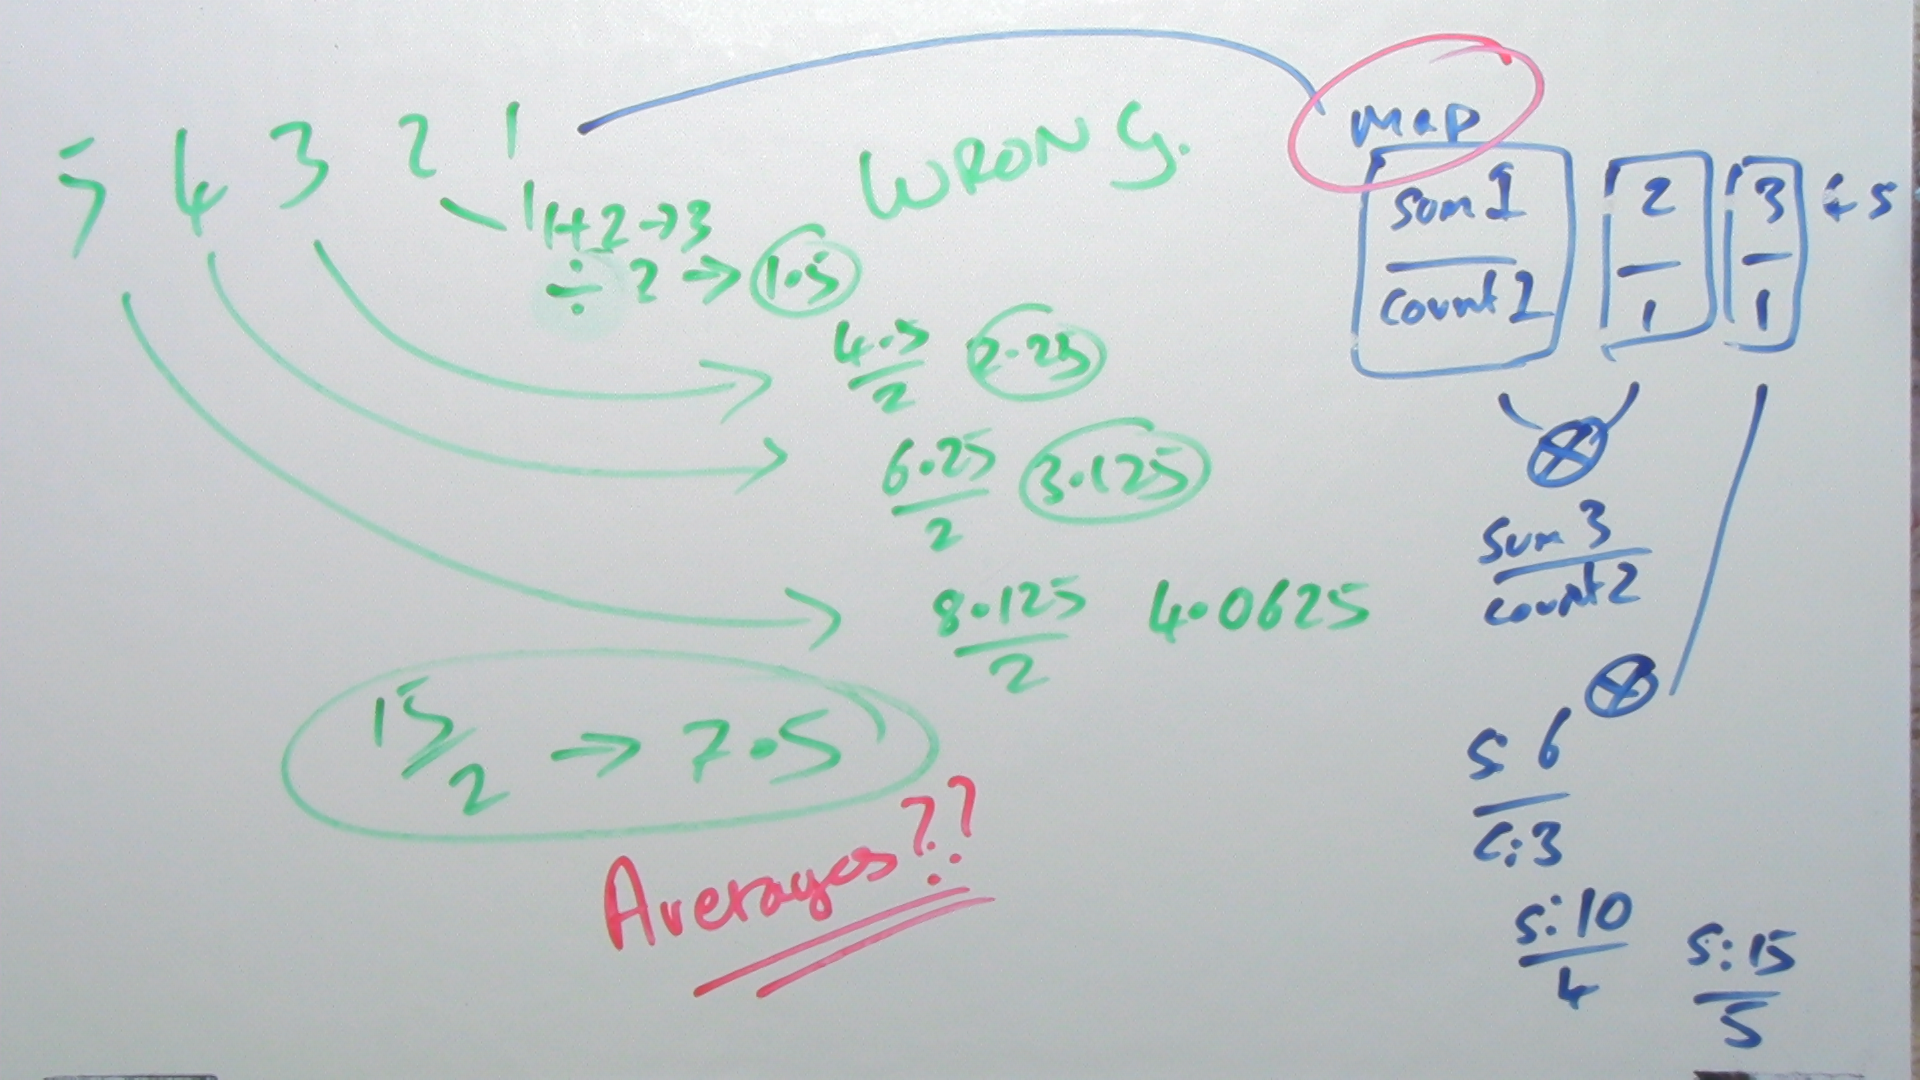 5 4 3 2 1
1+2→3
÷ 2 → 1.5
WRONG.
4.5
2
2.25
6.25
2
3.125
8.125
2
4.0625
15/2 → 7.5
Averages??
map
sum 1
count 1
2
1
3
1
4 5
sum 3
count 2
s: 6
c: 3
s: 10
4
s: 15
5